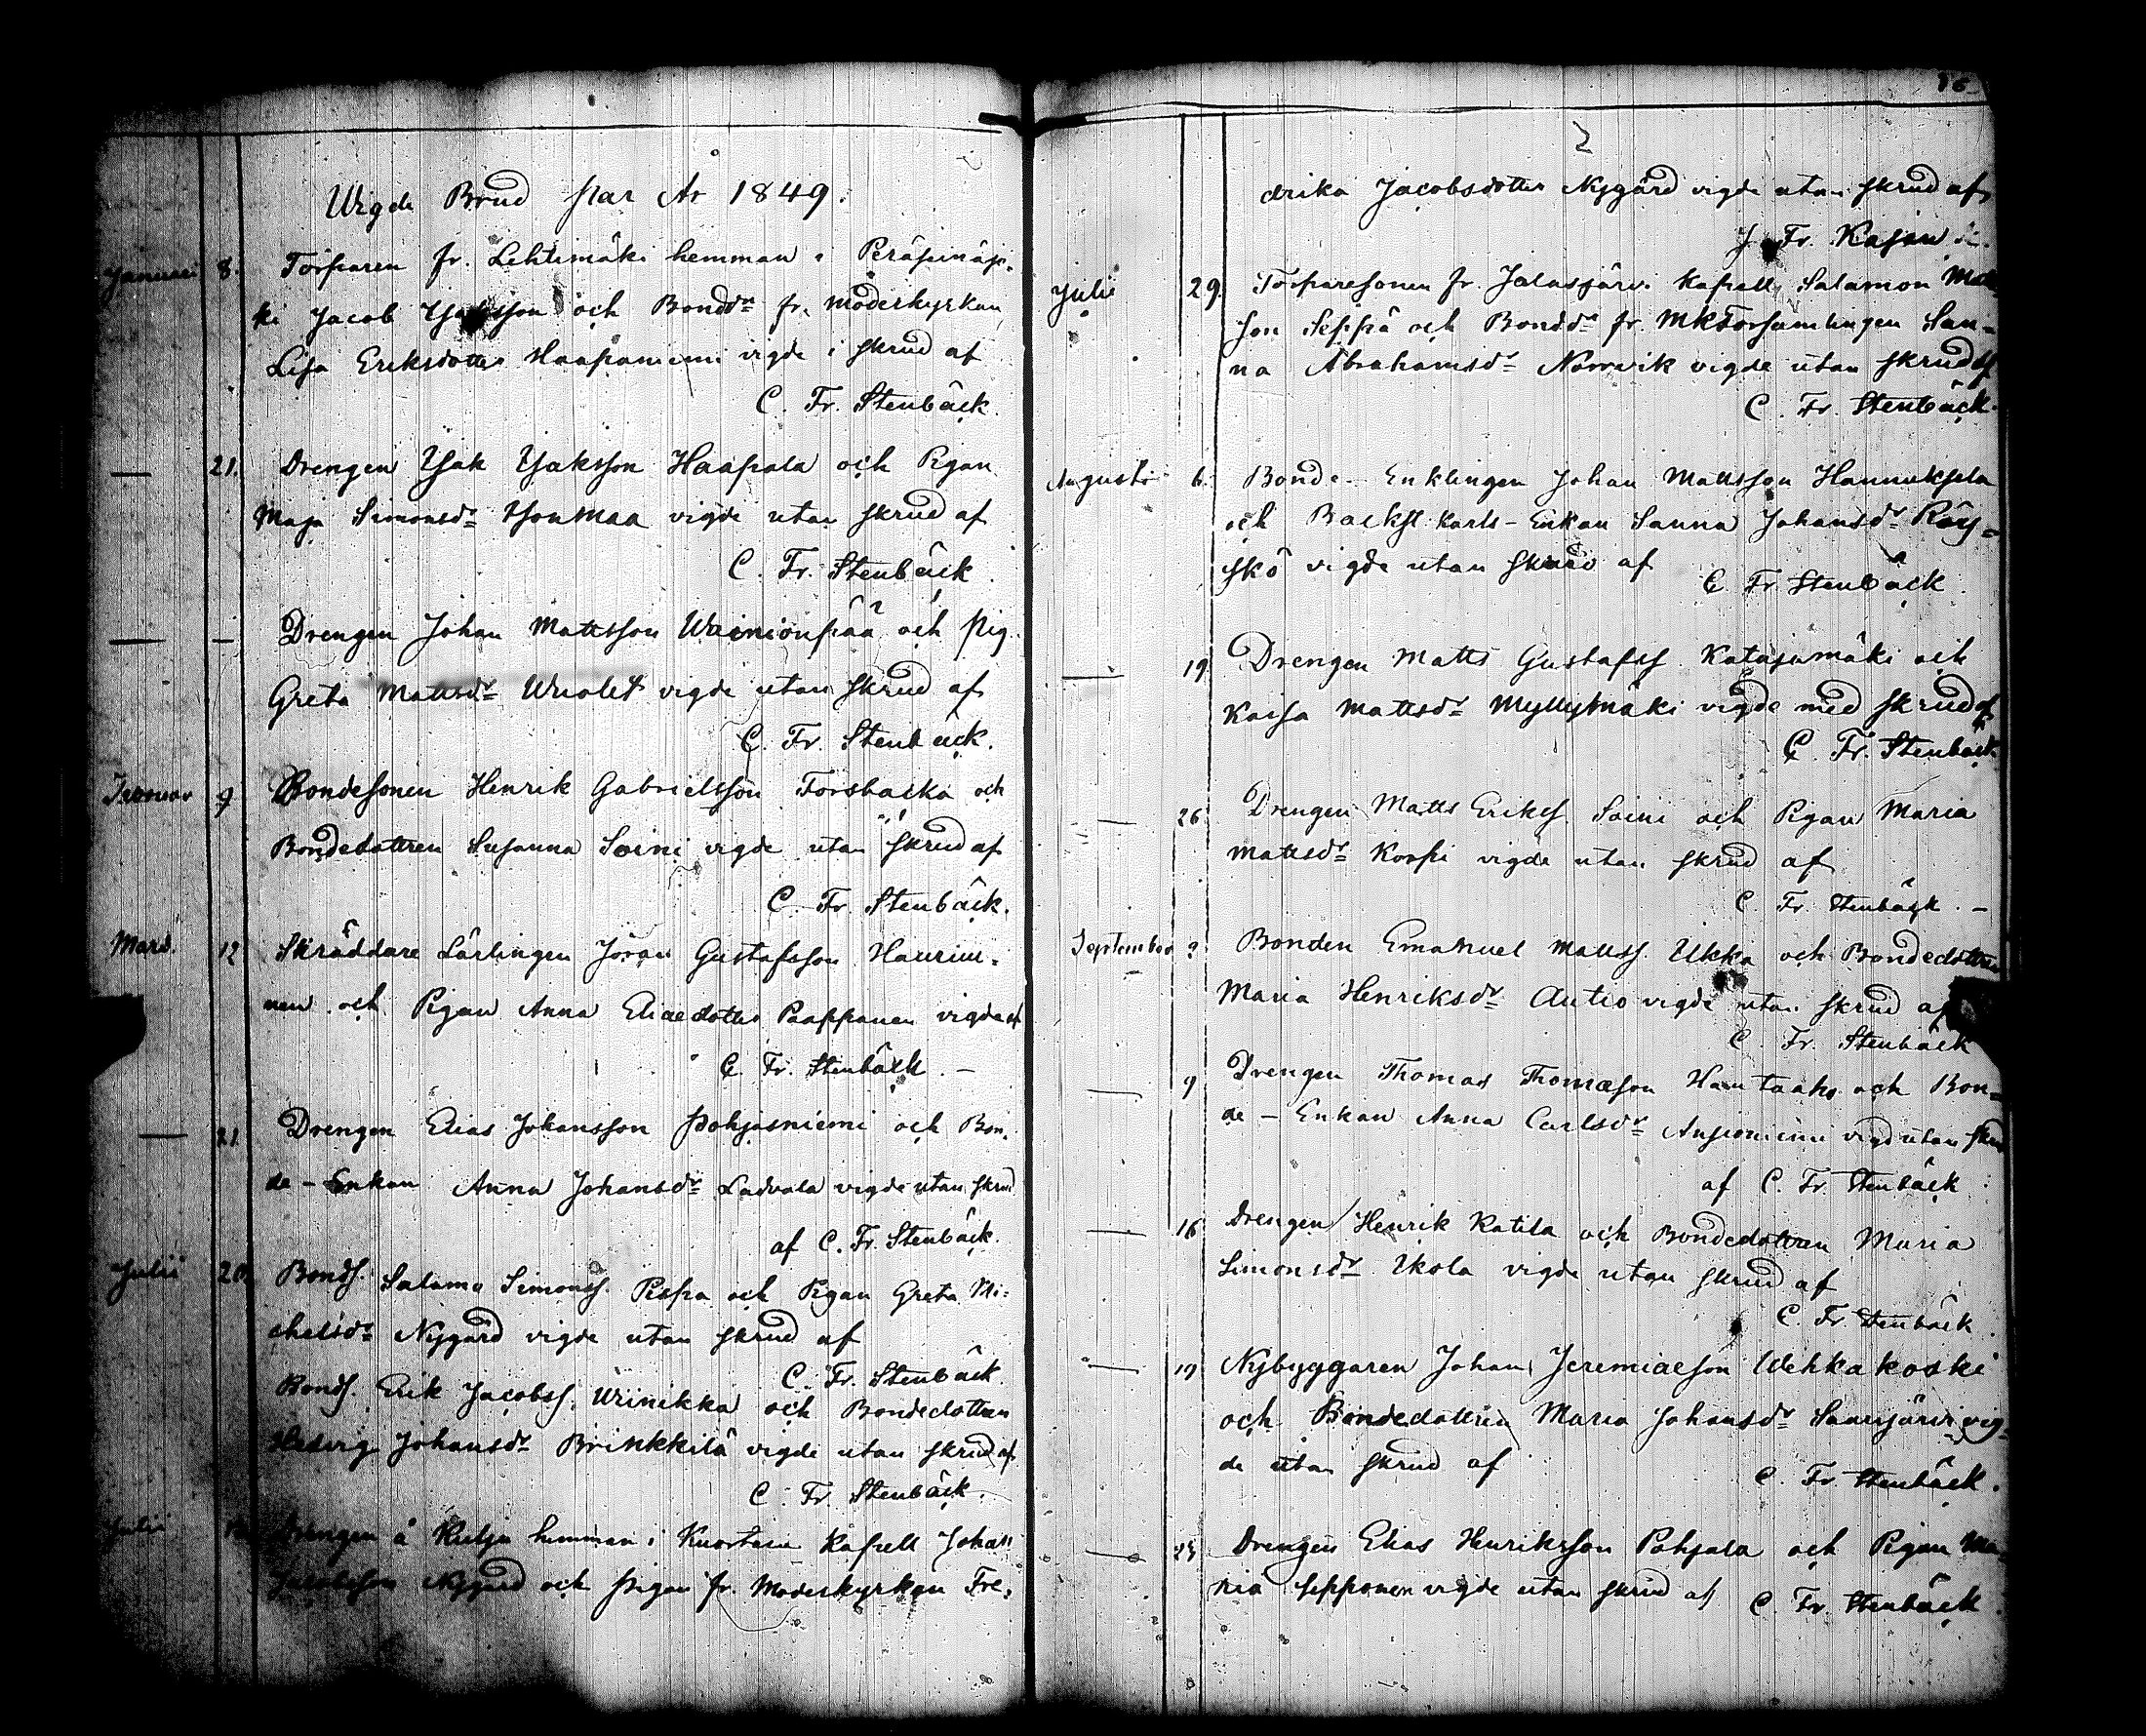 Wigde Brud par År 1849.
Januari 8. Torparen fr. Lehtimäki hemman i Peräseinäjo-
ki Jacob och Bondd:r fr. Moderkyrkan
Lisa Eriksdotter Haapaniemi vigde i skrud af
C. Fr. Stenbäck.
— 21. Drengen Isak Isaksson Haapala och Pigan
Maja Simonsd:r Isonmaa vigde utan skrud af
C. Fr. Stenbäck.
— — Drengen Johan Mattsson Wainionpää och Pig.
Greta Mattsd:r vigde utan skrud af
C. Fr. Stenbäck.
9 Bondesonen Henrik Gabrielsson Forsbacka och
Bondedottren Susanna Soini vigde utan skrud af
C. Fr. Stenbäck.
Mars. 12 Skräddare Lärlingen Jöran Gustafsson
nen och Pigan Anna Eliaedotter Paappanen vigde af
C. Fr. Stenbäck. —
— 21. Drengen Elias Johansson Pohjasniemi och Bon-
de-Enkan Anna Johansd:r Ladvala vigde utan skrud
af C. Fr. Stenbäck.
Julii 20. Bonds. Salomo Simonss. och Pigan Greta Mi-
chelsd:r Nygård vigde utan skrud af
C. Fr. Stenbäck.
Bonds. Erik Jacobss. och Bondedottren
Hedvig Johansd:r Brinkkilä vigde utan skrud af
C. Fr. Stenbäck.
Julii Drengen å hemman i Kuortane Kapell Johan
Nygård och Pigan fr. Moderkyrkan Fre-
16
2
drika Jacobsdotter Nygård vigde utan skrud af
J. Fr. Kajan
Julii 29. Torparesonen fr. Jalasjärvi Kapell Salamon Matts-
son Seppä och Bondd:r fr. Församlingen San-
na Abrahamsd:r Norrvik vigde utan skrud af
C. Fr. Stenbäck.
Augusti 6. Bonde-Enklingen Johan Mattsson Hannuksela
och Backst. Karls-Enkan Sanna Johansd:r Röys-
skö vigde utan skrud af
C. Fr. Stenbäck.
— 19 Drengen Matts Gustafss. Katajamäki och
Kaisa Mattsd:r Myllymäki vigde med skrud af
C. Fr. Stenbäck
— 26. Drengen Matts Erikss. Soini och Pigan Maria
Mattsd:r Korpi vigde utan skrud af
C. Fr. Stenbäck. —
September Bonden Emanuel Mattss. Ukka och Bondedottren
Maria Henriksd:r Autio vigde utan skrud af
C. Fr. Stenbäck
— 9 Drengen Thomas Thomæson och Bon-
de-Enkan Anna Carlsd:r vigd utan skrud
af C. Fr. Stenbäck
— 16 Drengen Henrik Katila och Bondedottren Maria
Simonsd:r Ikola vigde utan skrud af
C. Fr. Stenbäck.
— 19 Nybyggaren Johan Jeremiaeson Wehkakoski
och Bondedottren Maria Johansd:r Saarijärvi vig-
de utan skrud af
C. Fr. Stenbäck.
— 25 Drengen Elias Henriksson Pohjala och Pigan Ma-
ria Sepponen vigde utan skrud af C. Fr. Stenbäck.